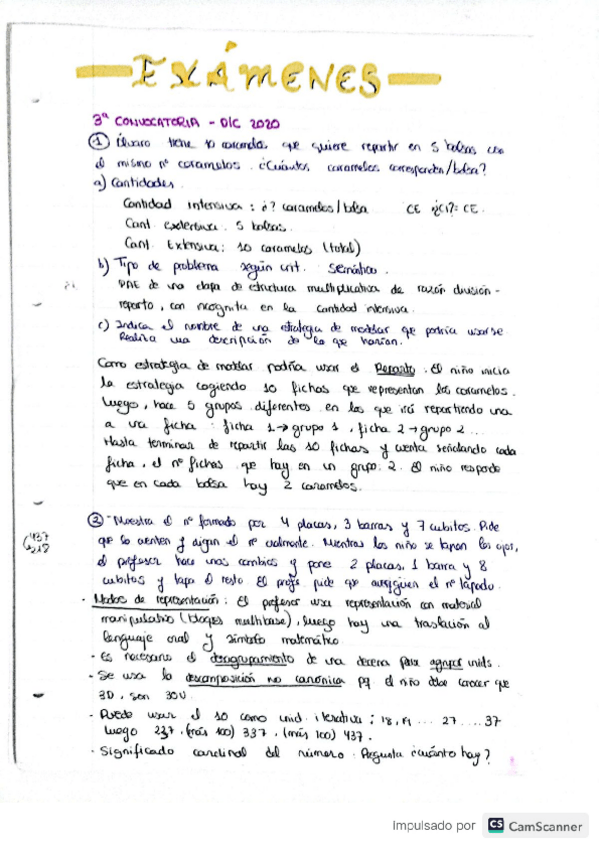 EXÁMENES
3ª CONVOCATORIA - DIC 2020
① Álvaro tiene 10 caramelos que quiere repartir en 5 bolsas con
el mismo nº caramelos. ¿Cuántos caramelos corresponden/bolsa?
a) Cantidades.
Cantidad intensiva: ¿? caramelos/bolsa CE ¿CI?= CE.
Cant. extensiva. 5 bolsas.
Cant. Extensiva: 10 caramelos (total)
b) Tipo de problema según crit. semántico.
PAE de una etapa de estructura multiplicativa de razón división-
reparto, con incógnita en la cantidad intensiva.
c) Indica el nombre de una estrategia de modelar que podría usarse
Realiza una descripción de lo que harían.
Como estrategia de modelar podría usar el Reparto. El niño inicia
la estrategia cogiendo 10 fichas que representan los caramelos.
Luego, hace 5 grupos diferentes en los que irá repartiendo una
a una ficha: ficha 1→grupo 1, ficha 2→grupo 2...
Hasta terminar de repartir las 10 fichas y cuenta señalando cada
ficha, el nº fichas que hay en un grupo: 2. El niño responde
que en cada bolsa hay 2 caramelos.
② -Muestra el nº formado por 4 placas, 3 barras y 7 cubitos. Pide
437
218
que lo cuenten y digan el nº oralmente. Mientras los niño se tapan los ojos,
el profesor hace unos cambios y pone 2 placas, 1 barra y 8
cubitos y tapa el resto. El profe pide que averigüen el nº tapado.
· Modos de representación: El profesor usa representación con material
manipulativo (bloques multibase), luego hay una traslación al
lenguaje oral y símbolo matemático.
- Es necesario el desagrupamiento de una decena para agrupar unids.
- Se usa la descomposición no canónica pq el niño debe conocer que
3D, son 30U.
- Puede usar el 10 como unid. iterativa: 18, 19 ... 27 .... 37
luego 237. (más 100) 337. (más 100) 437.
- Significado cardinal del número. Pregunta ¿cuánto hay?
Impulsado por CS CamScanner